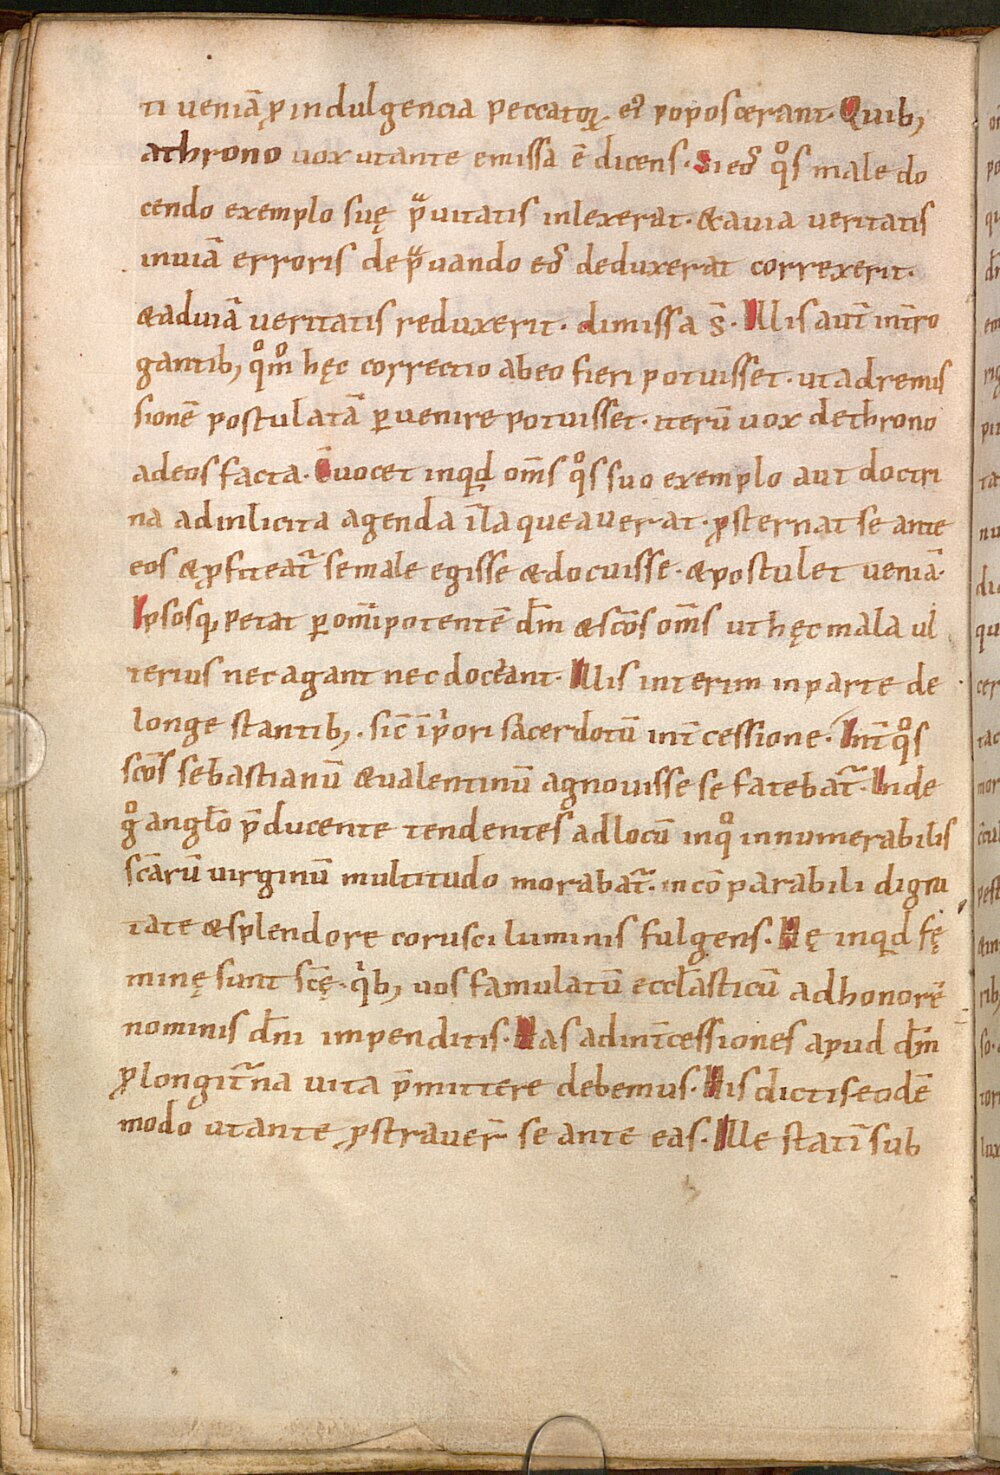 ti ueniā ꝓ indulgencia peccatoꝝ eiꝰ poposcerant. Quib;
a throno uox ut ante emissa ē dicens. Si eoſ qͦs male do
cendo exemplo suę prauitatis inlexerat. & a uia ueritatis
inuiā erroris deprauando eoſ deduxerat correxerit.
& ad uiā ueritatis reduxerit. dimissa s̄. Illis aut̄ int̄ro
gantib; qͦmͦ hęc correctio ab eo fieri potuisset. ut ad remis
sionē postulatā ꝑuenire potuisset. iterū uox de throno
ad eos facta. Cuocet inqd om̄s qͦs suo exemplo aut doctri
na ad inlicita agenda īlaqueauerat. ꝓsternat se ante
eos & ꝓfiteat᷑ se male egisse & docuisse. & postulet ueniā.
Ipsosq; petat ꝑ om̄ipotentē dm̄ & sc̄os om̄s ut hęc mala ul
terius nec agant nec doceant. Illis interim in parte de
longe stantib;. sic̄ ī priori sacerdotū int̄cessione. Int̄ qͦs
sc̄os sebastianū & ualentinū agnouisse se fatebat᷑. Inde
gͦ anglo p̄ducente tendentes ad locū in qͦ innumerabilis
sc̄arū uirginū multitudo morabat᷑. incōparabili digni
tate & splendore corusci luminis fulgens. Hę inqd fę
minę sunt sc̄ę. qͥb; uos famulatū eccl̄asticū ad honorē
nominis dn̄i impenditis. Has ad int̄cessiones apud dm̄
ꝓ longit᷑na uita p̄mittere debemus. His dictis eodē
modo ut ante ꝓstrauer̄ se ante eas. Ille statī sub